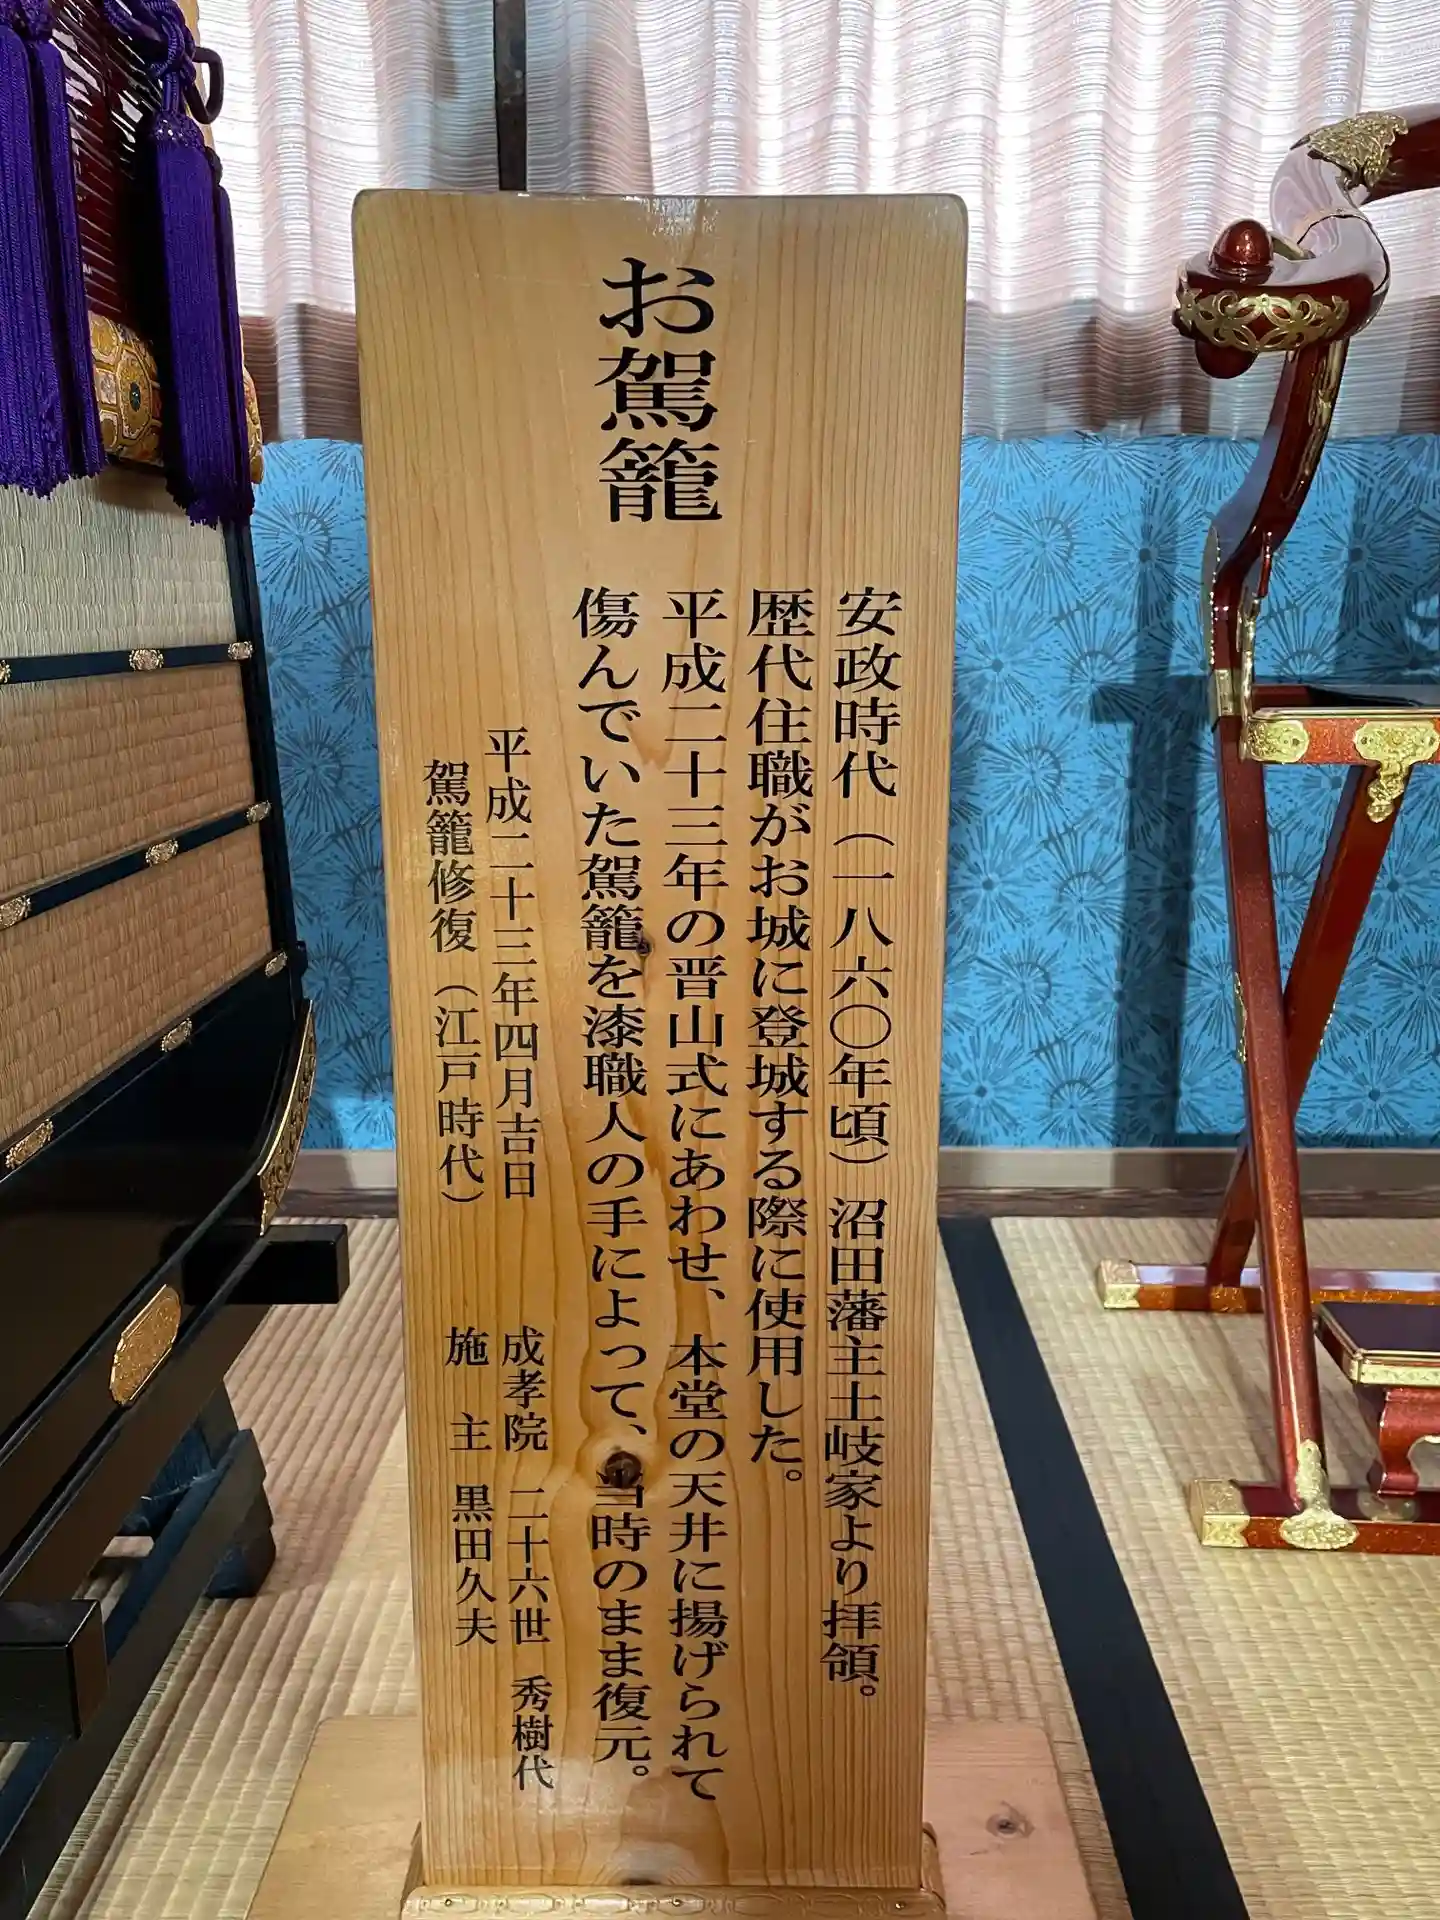 お駕籠
安政時代（一八六〇年頃）沼田藩主土岐家より拝領。
歴代住職がお城に登城する際に使用した。
平成二十三年の晋山式にあわせ、本堂の天井に揚げられて
傷んでいた駕籠を漆職人の手によって、当時のまま復元。
平成二十三年四月吉日　成孝院　二十六世　秀樹代
駕籠修復（江戸時代）　施　主　黒田久夫